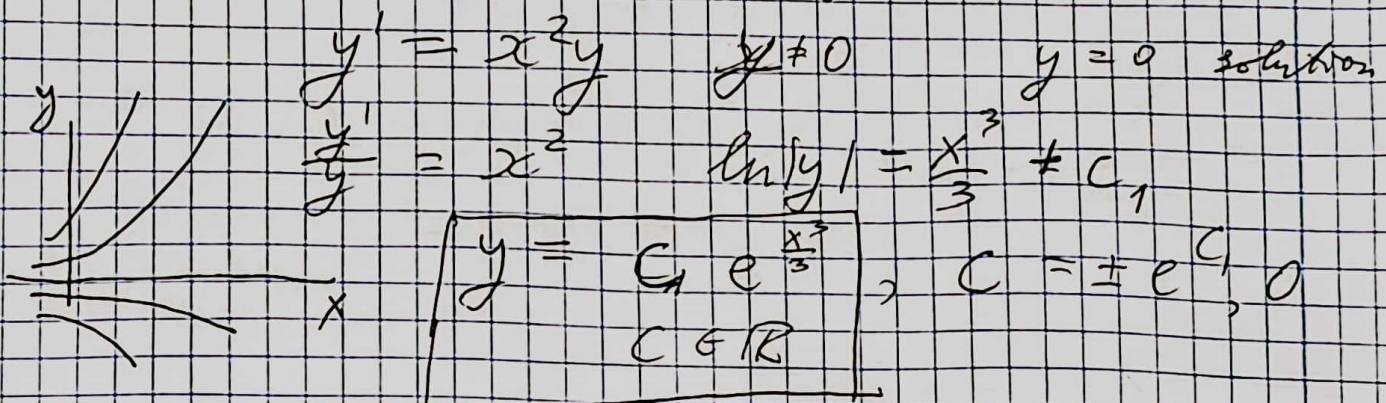 y' = x²y   y ≠ 0   y = 0 solution
y'/y = x²   ln|y| = x³/3 + C₁
y = C₁ e^(x³/3), C = ± e^(C₁), 0
C ∈ ℝ
y
x